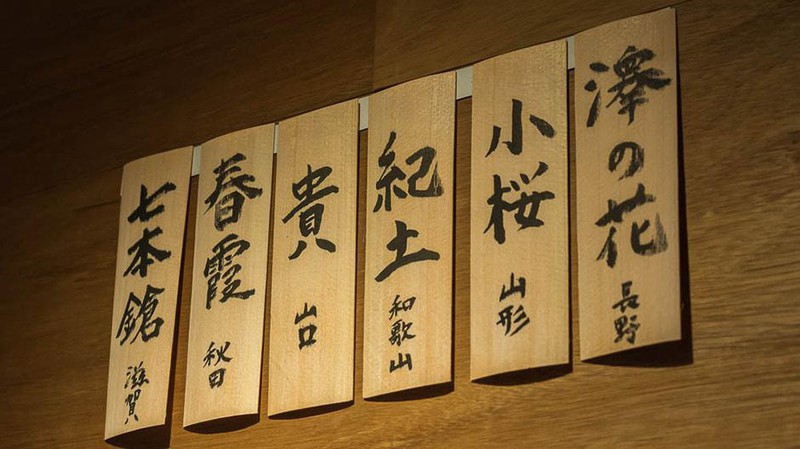 澤の花
長野
小桜
山形
紀土
和歌山
貴
山口
春霞
秋田
七本鎗
滋賀